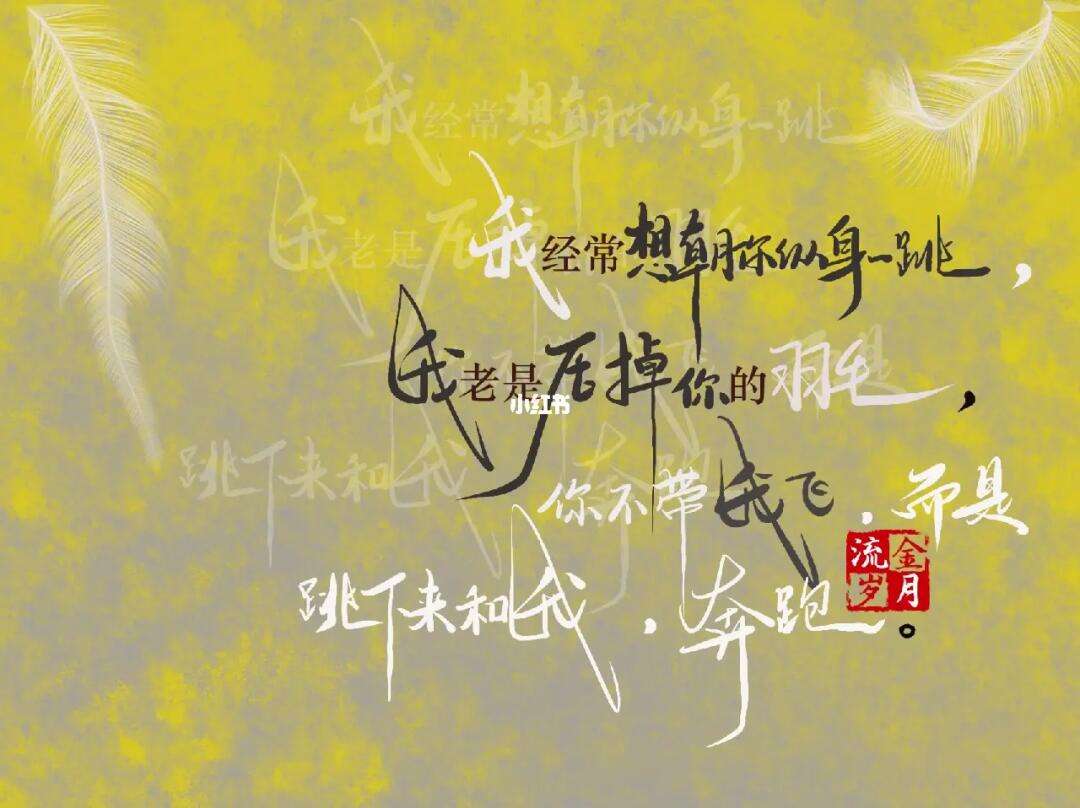 我经常想朝你纵身一跳
我老是压掉你的羽毛
跳下来和我 奔跑
我经常想朝你纵身一跳，
我老是压掉你的羽毛，
小红书
你不带我飞，而是
跳下来和我，奔跑。
流金岁月